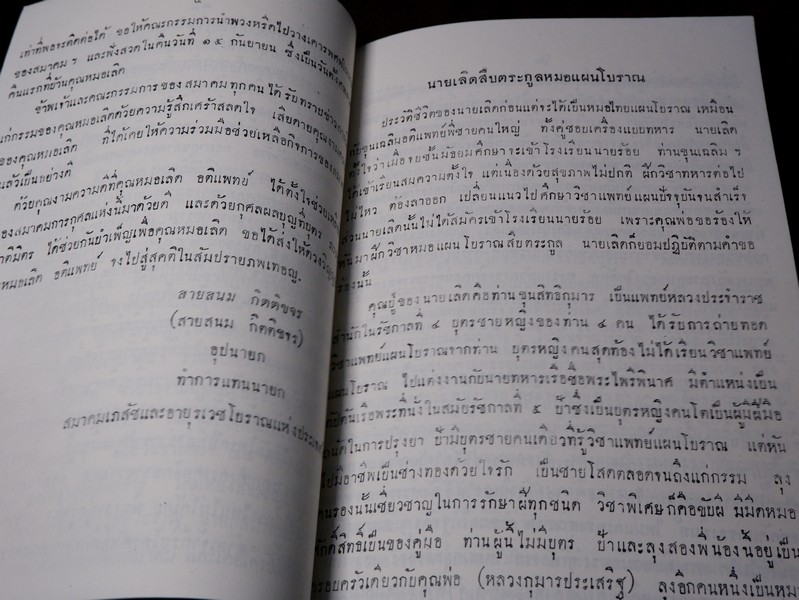 เท่าที่พอจะติดต่อได้ ขอให้คณะกรรมการนำพวงหรีดไปวางเคารพศพ
ของสมาคมฯ และฟังสวดในคืนวันที่ ๑๕ กันยายน ซึ่งเป็นวัน
คืนแรกที่ยันคุณหมอเลิด
ข้าพเจ้าและคณะกรรมการของสมาคมทุกคนได้รับทราบข่าว
แก่กรรมของคุณหมอเลิดด้วยความรู้สึกเศร้าสลดใจ เสียดายคุณงาม
ของคุณหมอเลิด ที่ได้เคยให้ความร่วมมือช่วยเหลือกิจการของ
แล้วเป็นอย่างดี
ด้วยคุณงามความดีที่คุณหมอเลิด อติแพทย์ ได้ตั้งใจช่วย
ของสมาคมการกุศลแห่งนี้มาด้วยดี และด้วยกุศลผลบุญที่บุตร
ญาติมิตร ได้ช่วยกันบำเพ็ญเพื่อคุณหมอเลิด ขอได้ส่งให้ดวง
หมอเลิด อติแพทย์ จงไปสู่สุคติในสัมปรายภพเทอญ.
สายสนม กิตติขจร
(สายสนม กิตติขจร)
อุปนายก
ทำการแทนนายก
สมาคมเภสัชและอายุรเวชโบราณแห่งประเทศ
นายเลิดสืบตระกูลหมอแผนโบราณ
ประวัติชีวิตของนายเลิดก่อนแต่จะได้เป็นหมอไทยแผนโบราณ เหมือน
กับขุนเฉลิมอติแพทย์พี่ชายคนใหญ่ ทั้งคู่ชอบเครื่องแบบทหาร นายเลิด
ตั้งใจว่าเมื่อจบชั้นมัธยมศึกษาจะเข้าโรงเรียนนายร้อย ท่านขุนเฉลิมฯ
ได้เข้าเรียนสมความตั้งใจ แต่เนื่องด้วยสุขภาพไม่ปกติ ฝึกวิชาทหารต่อไป
ไม่ไหว ต้องลาออก เปลี่ยนแนวไปศึกษาวิชาแพทย์แผนปัจจุบันจนสำเร็จ
ส่วนนายเลิดนั้นไม่ได้สมัครเข้าโรงเรียนนายร้อย เพราะคุณพ่อขอร้องให้
หันมาฝึกวิชาหมอแผนโบราณสืบตระกูล นายเลิดก็ยอมปฏิบัติตามคำขอ
ร้องนั้น
คุณปู่ของนายเลิดคือท่านขุนสิทธิกุมาร เป็นแพทย์หลวงประจำราช
สำนักในรัชกาลที่ ๔ บุตรชายหญิงของท่าน ๔ คน ได้รับการถ่ายทอด
วิชาแพทย์แผนโบราณจากท่าน บุตรหญิงคนสุดท้องไม่ได้เรียนวิชาแพทย์
แผนโบราณ ไปแต่งงานกับนายทหารเรือชื่อพระไพรีพินาศ มีตำแหน่งเป็น
กัปตันเรือพระที่นั่งในสมัยรัชกาลที่ ๕ ป้าซึ่งเป็นบุตรหญิงคนโตเป็นผู้มีฝีมือ
ถนัดในการปรุงยา ป้ามีบุตรชายคนเดียวที่รู้วิชาแพทย์แผนโบราณ แต่หัน
ไปมีอาชีพเป็นช่างทองด้วยใจรัก เป็นชายโสดตลอดจนถึงแก่กรรม ลุง
คนรองนั้นเชี่ยวชาญในการรักษาฝีทุกชนิด วิชาพิเศษก็คือขับผี มีมีดหมอ
ศักดิ์สิทธิ์เป็นของคู่มือ ท่านผู้นี้ไม่มีบุตร ป้าและลุงสองพี่น้องนี้อยู่เป็น
ครอบครัวเดียวกับคุณพ่อ (หลวงกุมารประเสริฐ) ลุงอีกคนหนึ่งเป็นหมอ